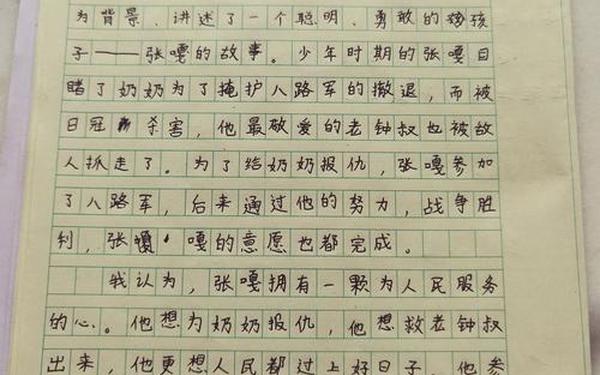 为背景、讲述了一个聪明、勇敢的孩
子——张嘎的故事。少年时期的张嘎目
睹了奶奶为了掩护八路军的撤退，而被
日冠杀害，他最敬爱的老钟叔也被敌
人抓走了。为了给奶奶报仇，张嘎参加
了八路军，后来通过他的努力，战争胜
利，张嘎的意愿也都完成。
我认为，张嘎拥有一颗为人民服务
的心。他想为奶奶报仇，他想救老钟叔
出来，他更想人民都过上好日子，他参